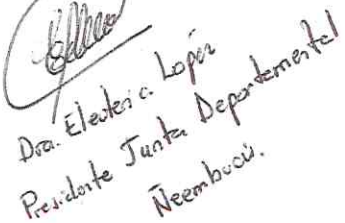 Dra. Electeri c. Lopez
Presidente Junta Departamental
Ñeembucú.